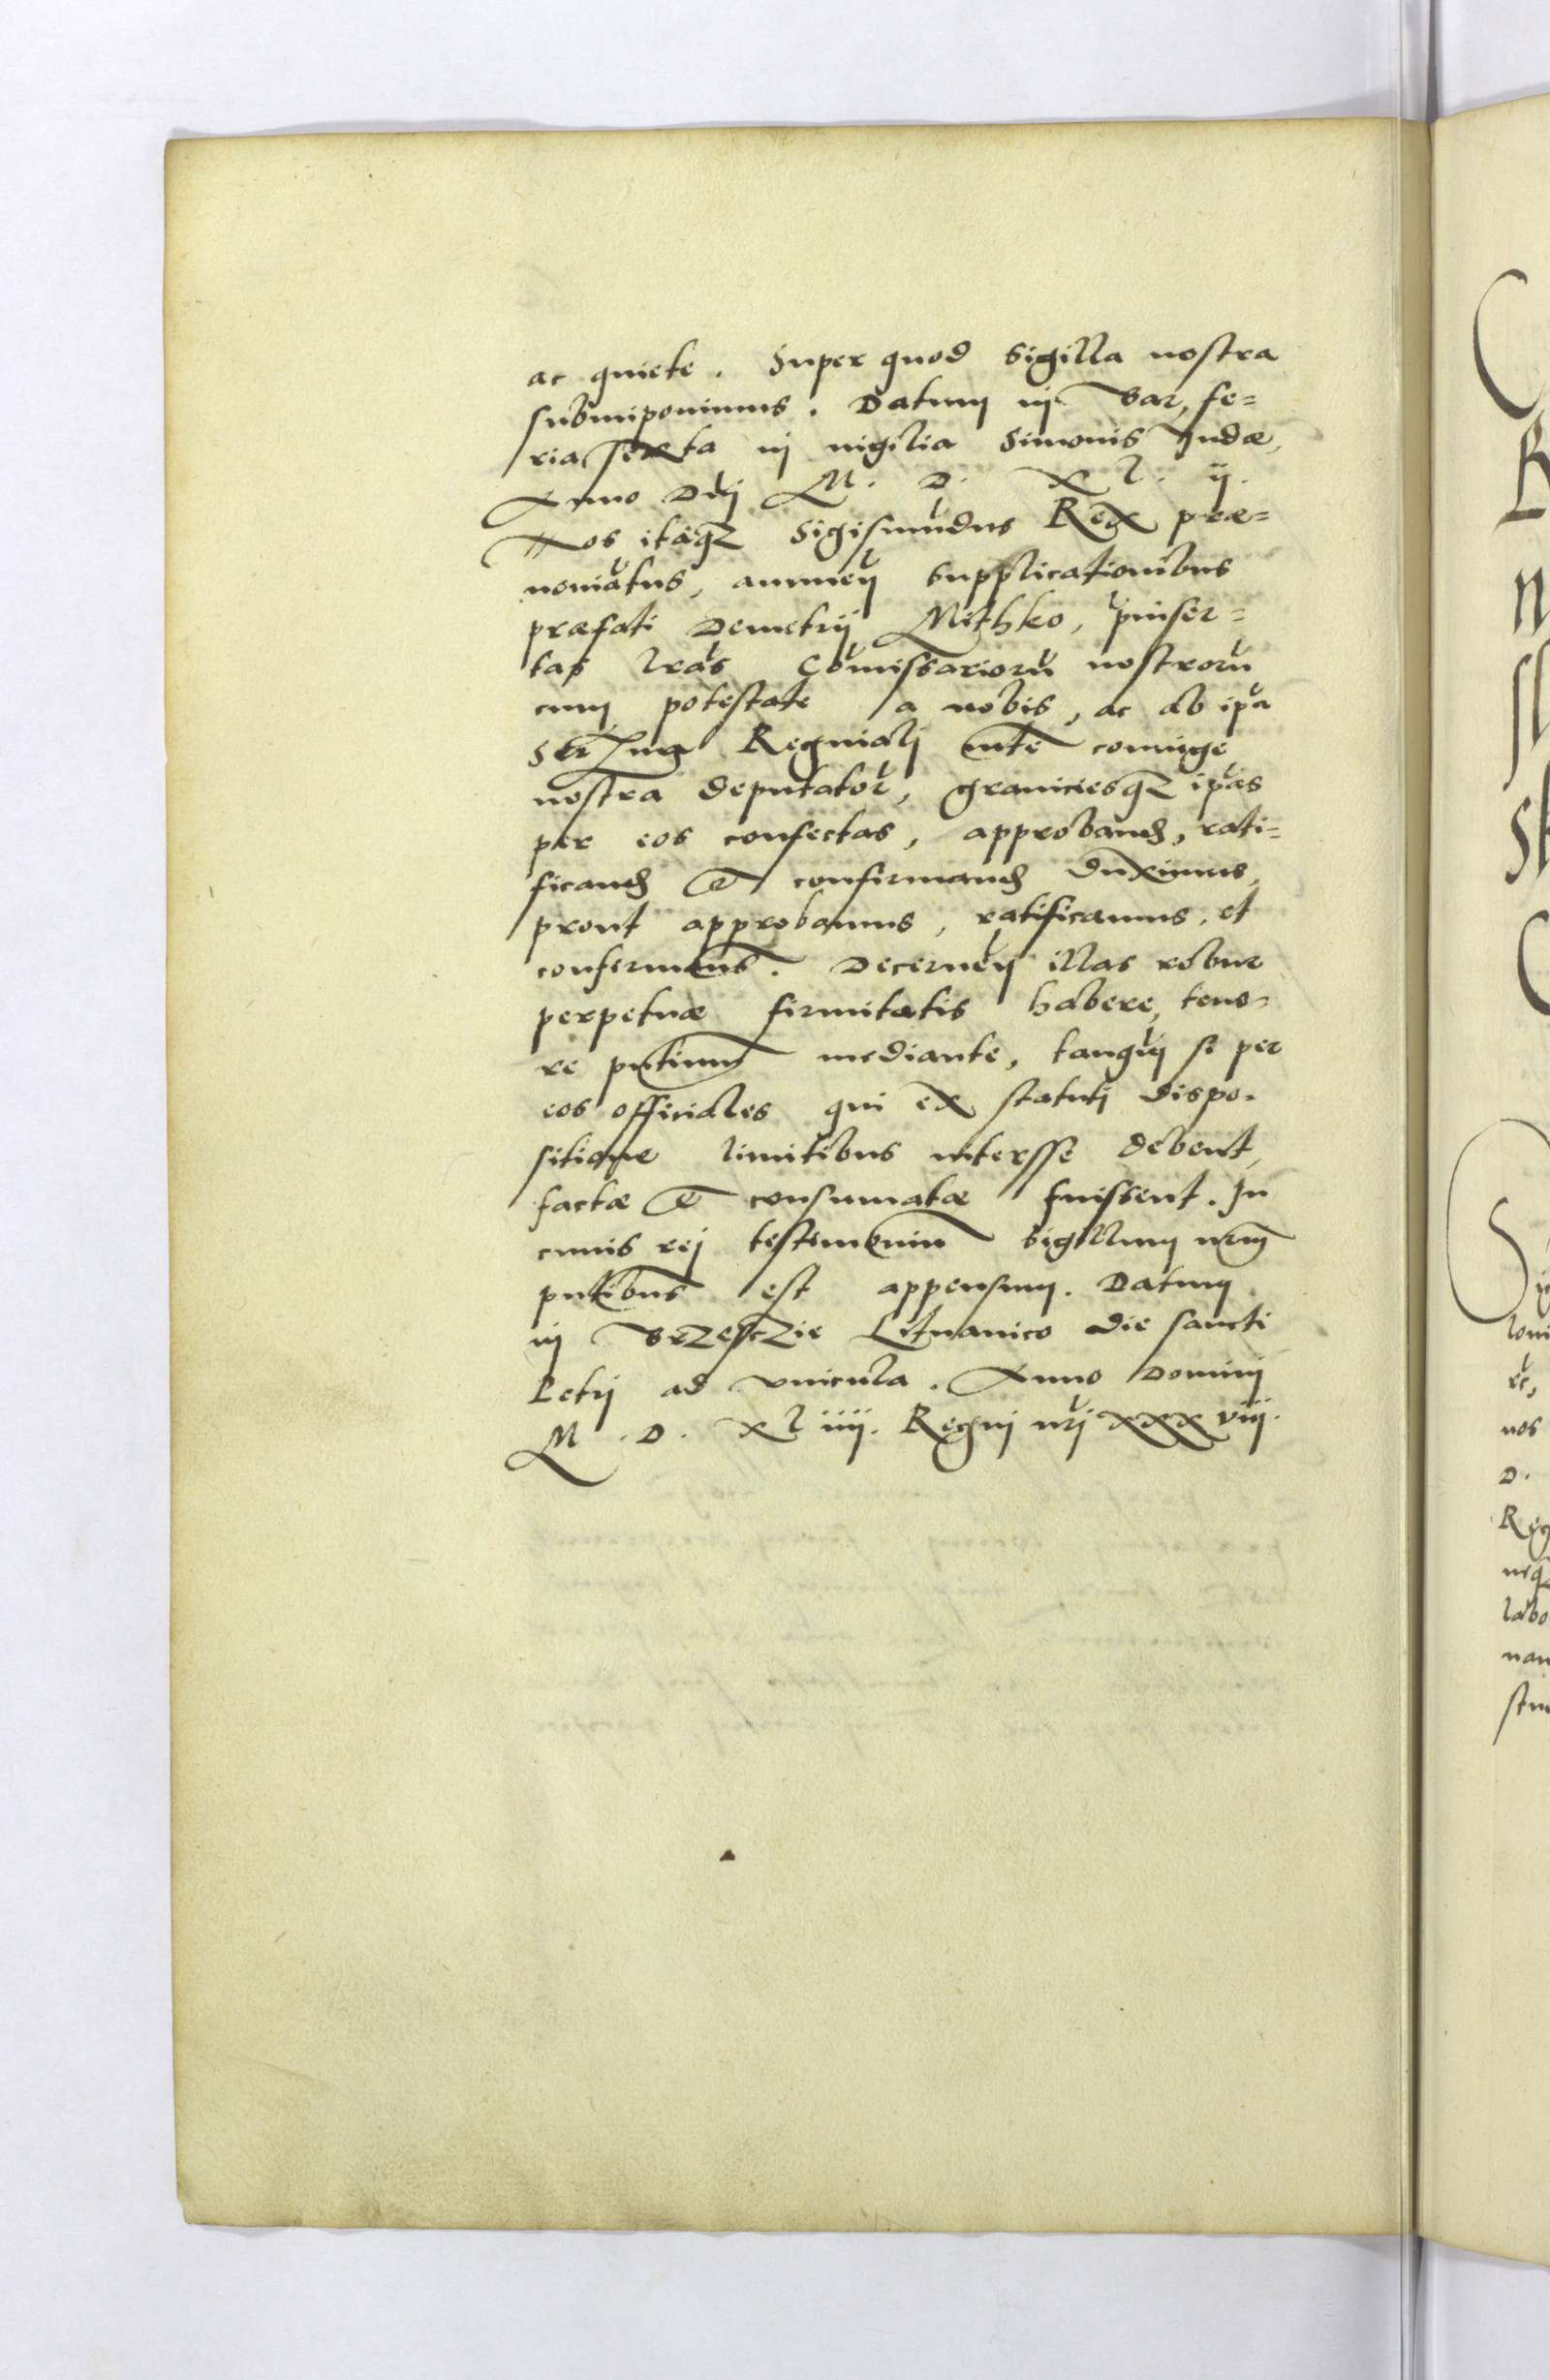 ac quiete. Super quod sigilla nostra
subimponimus. Datum in Bar, fe=
ria sexta in vigilia Simonis Judæ,
Anno Dnj M. D. X L. ij.
Nos itaqz Sigismūdus Rex præ=
nomiātus, annuen supplicationibus
præfati Demetrij Mithko, pinser=
tas lras Cōmissariorū nostrorū
cum potestate a nobis, ac ab ipa
Serma Reginali mte coniuge
nostra deputator, graniciesqz ipas
per eos confectas, approband, rati=
ficand et confirmand duximus,
prout approbamus, ratificamus, et
confirmams. Decernen illas robur
perpetuæ firmitatis habere, teno=
re pntium mediante, tanqm si per
eos officiales qui ex statuti dispo=
sitione limitibus interesse debent,
factæ et consumatæ fuissent. In
cuius rej testimoniu sigillum nrm
pntibus est appensum. Datum
in Brzesczie Lituanico die sancti
Petrj ad vincula. Anno Dominj
M. D. XL iiij. Regnj nrj xxx viij.